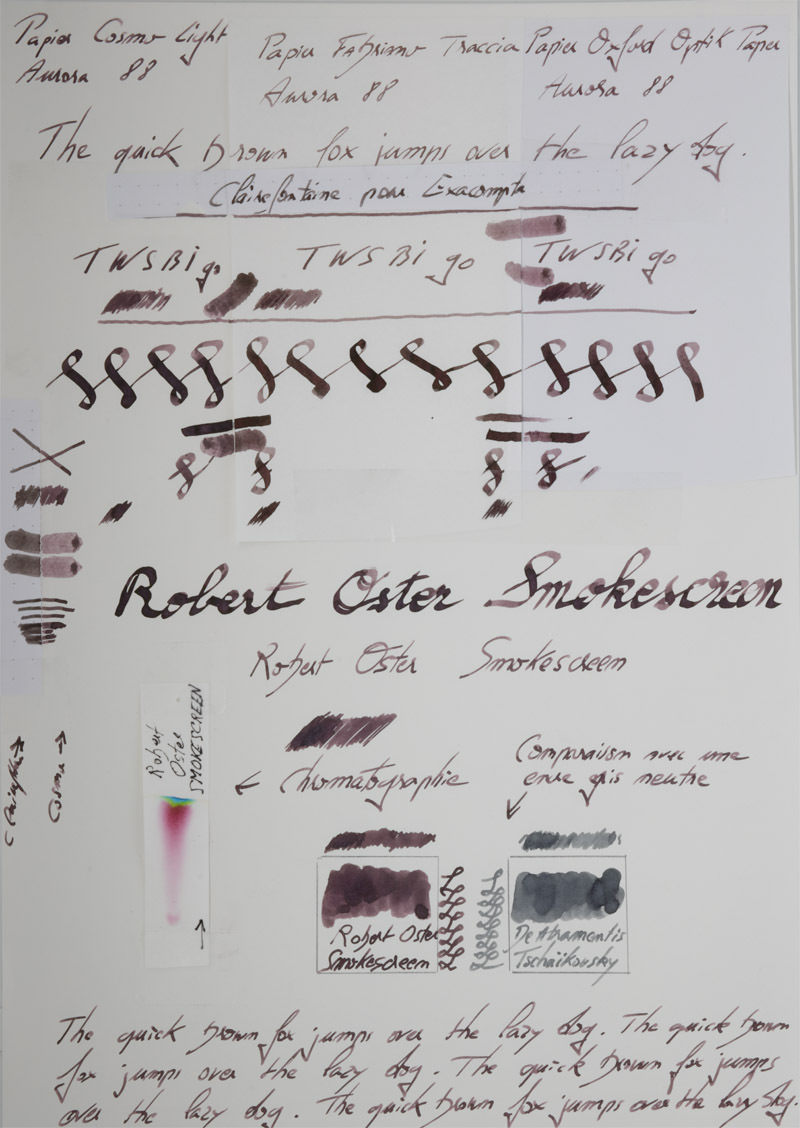 Papier Cosmo Light
Aurora 88
Papier Fabriano Traccia
Aurora 88
Papier Oxford Optik Paper
Aurora 88
The quick brown fox jumps over the lazy dog.
Clairefontaine pour Exacompta
TWSBi go
TWSBi go
TWSBi go
Robert Oster Smokescreen
Robert Oster Smokescreen
Robert
Oster
SMOKESCREEN
← Chromatographie
Comparaison avec une
encre gris neutre
Cosmo →
Robert Oster
Smokescreen
De Atramentis
Tschaikovsky
The quick brown fox jumps over the lazy dog. The quick brown
fox jumps over the lazy dog. The quick brown fox jumps
over the lazy dog. The quick brown fox jumps over the lazy dog.